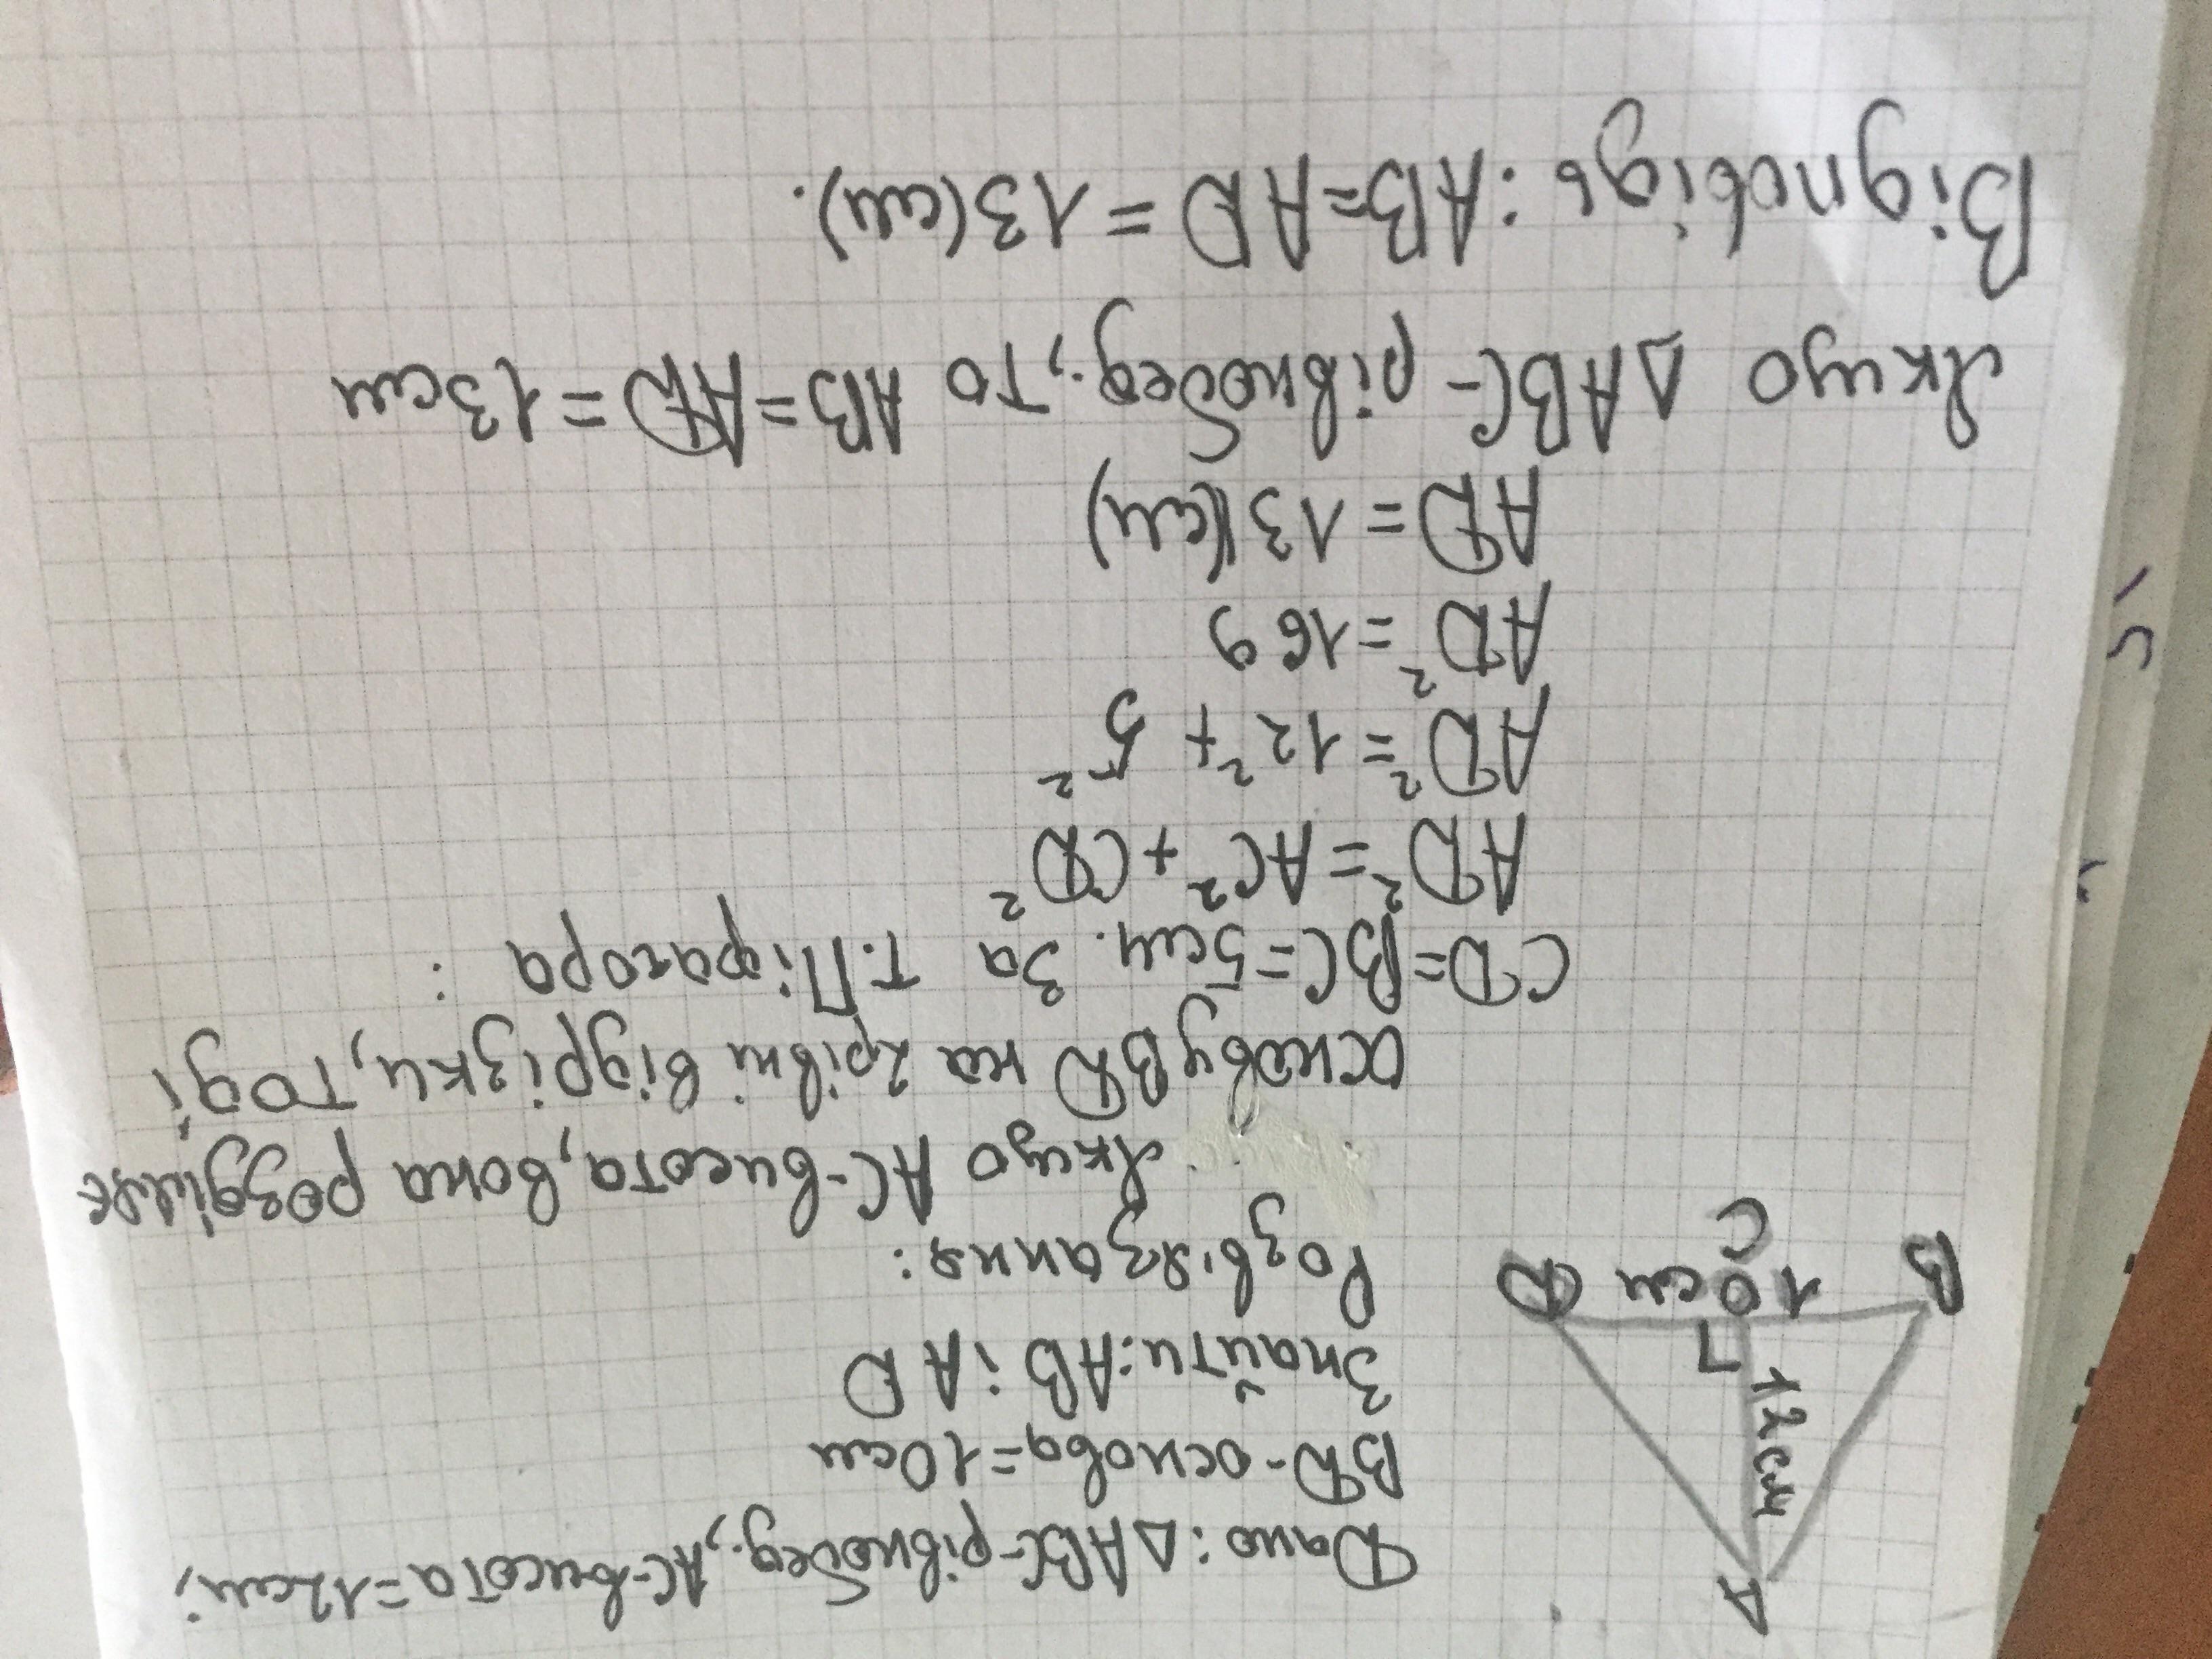 Дано: △ABC-рівнобед., AC-висота=12см;
BD-основа=10см
Знайти: AB i AD
Розв'язання:
Якщо AC-висота, вона розділяє
основу BD на 2 рівні відрізки, тоді
CD=BC=5см. За т.Піфагора:
AD²=AC²+CD²
AD²=12²+5²
AD²=169
AD=13(см)
Якщо △ABC-рівнобед., то AB=AD=13см
Відповідь: AB=AD=13(см).
A
12см
B
10см
D
C